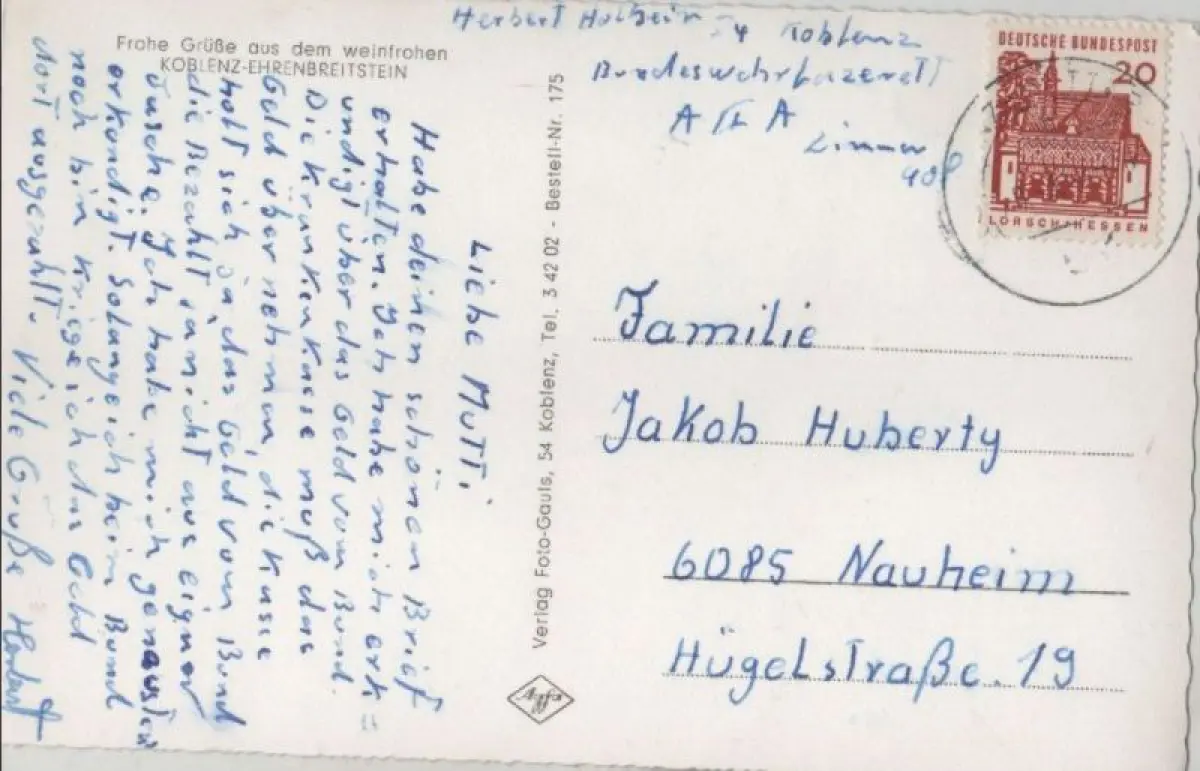 Frohe Grüße aus dem weinfrohen
KOBLENZ-EHRENBREITSTEIN
Liebe Mutti
Habe deinen schönen Brief
erhalten. Ich habe mich erk=
undigt über das Geld vom Bund.
Die Krankenkasse muß das
Geld über nehmen, die Kasse
holt sich ja das Geld vom Bund
die Bezahlt ja nicht aus eigner
Tasche. Ich habe mich genausten
erkundigt. Solange ich beim Bund
noch bin kriege ich das Geld
dort ausgezahlt. Viele Grüße Herbert
Verlag Foto-Gauls, 54 Koblenz, Tel. 3 42 02 - Bestell-Nr. 175
Agfa
Herbert 54 Koblenz
Bundeswehrlazarett
Zimmer
408
DEUTSCHE BUNDESPOST
20
LORSCH/HESSEN
Familie
Jakob Huberty
6085 Nauheim
Hügelstraße. 19